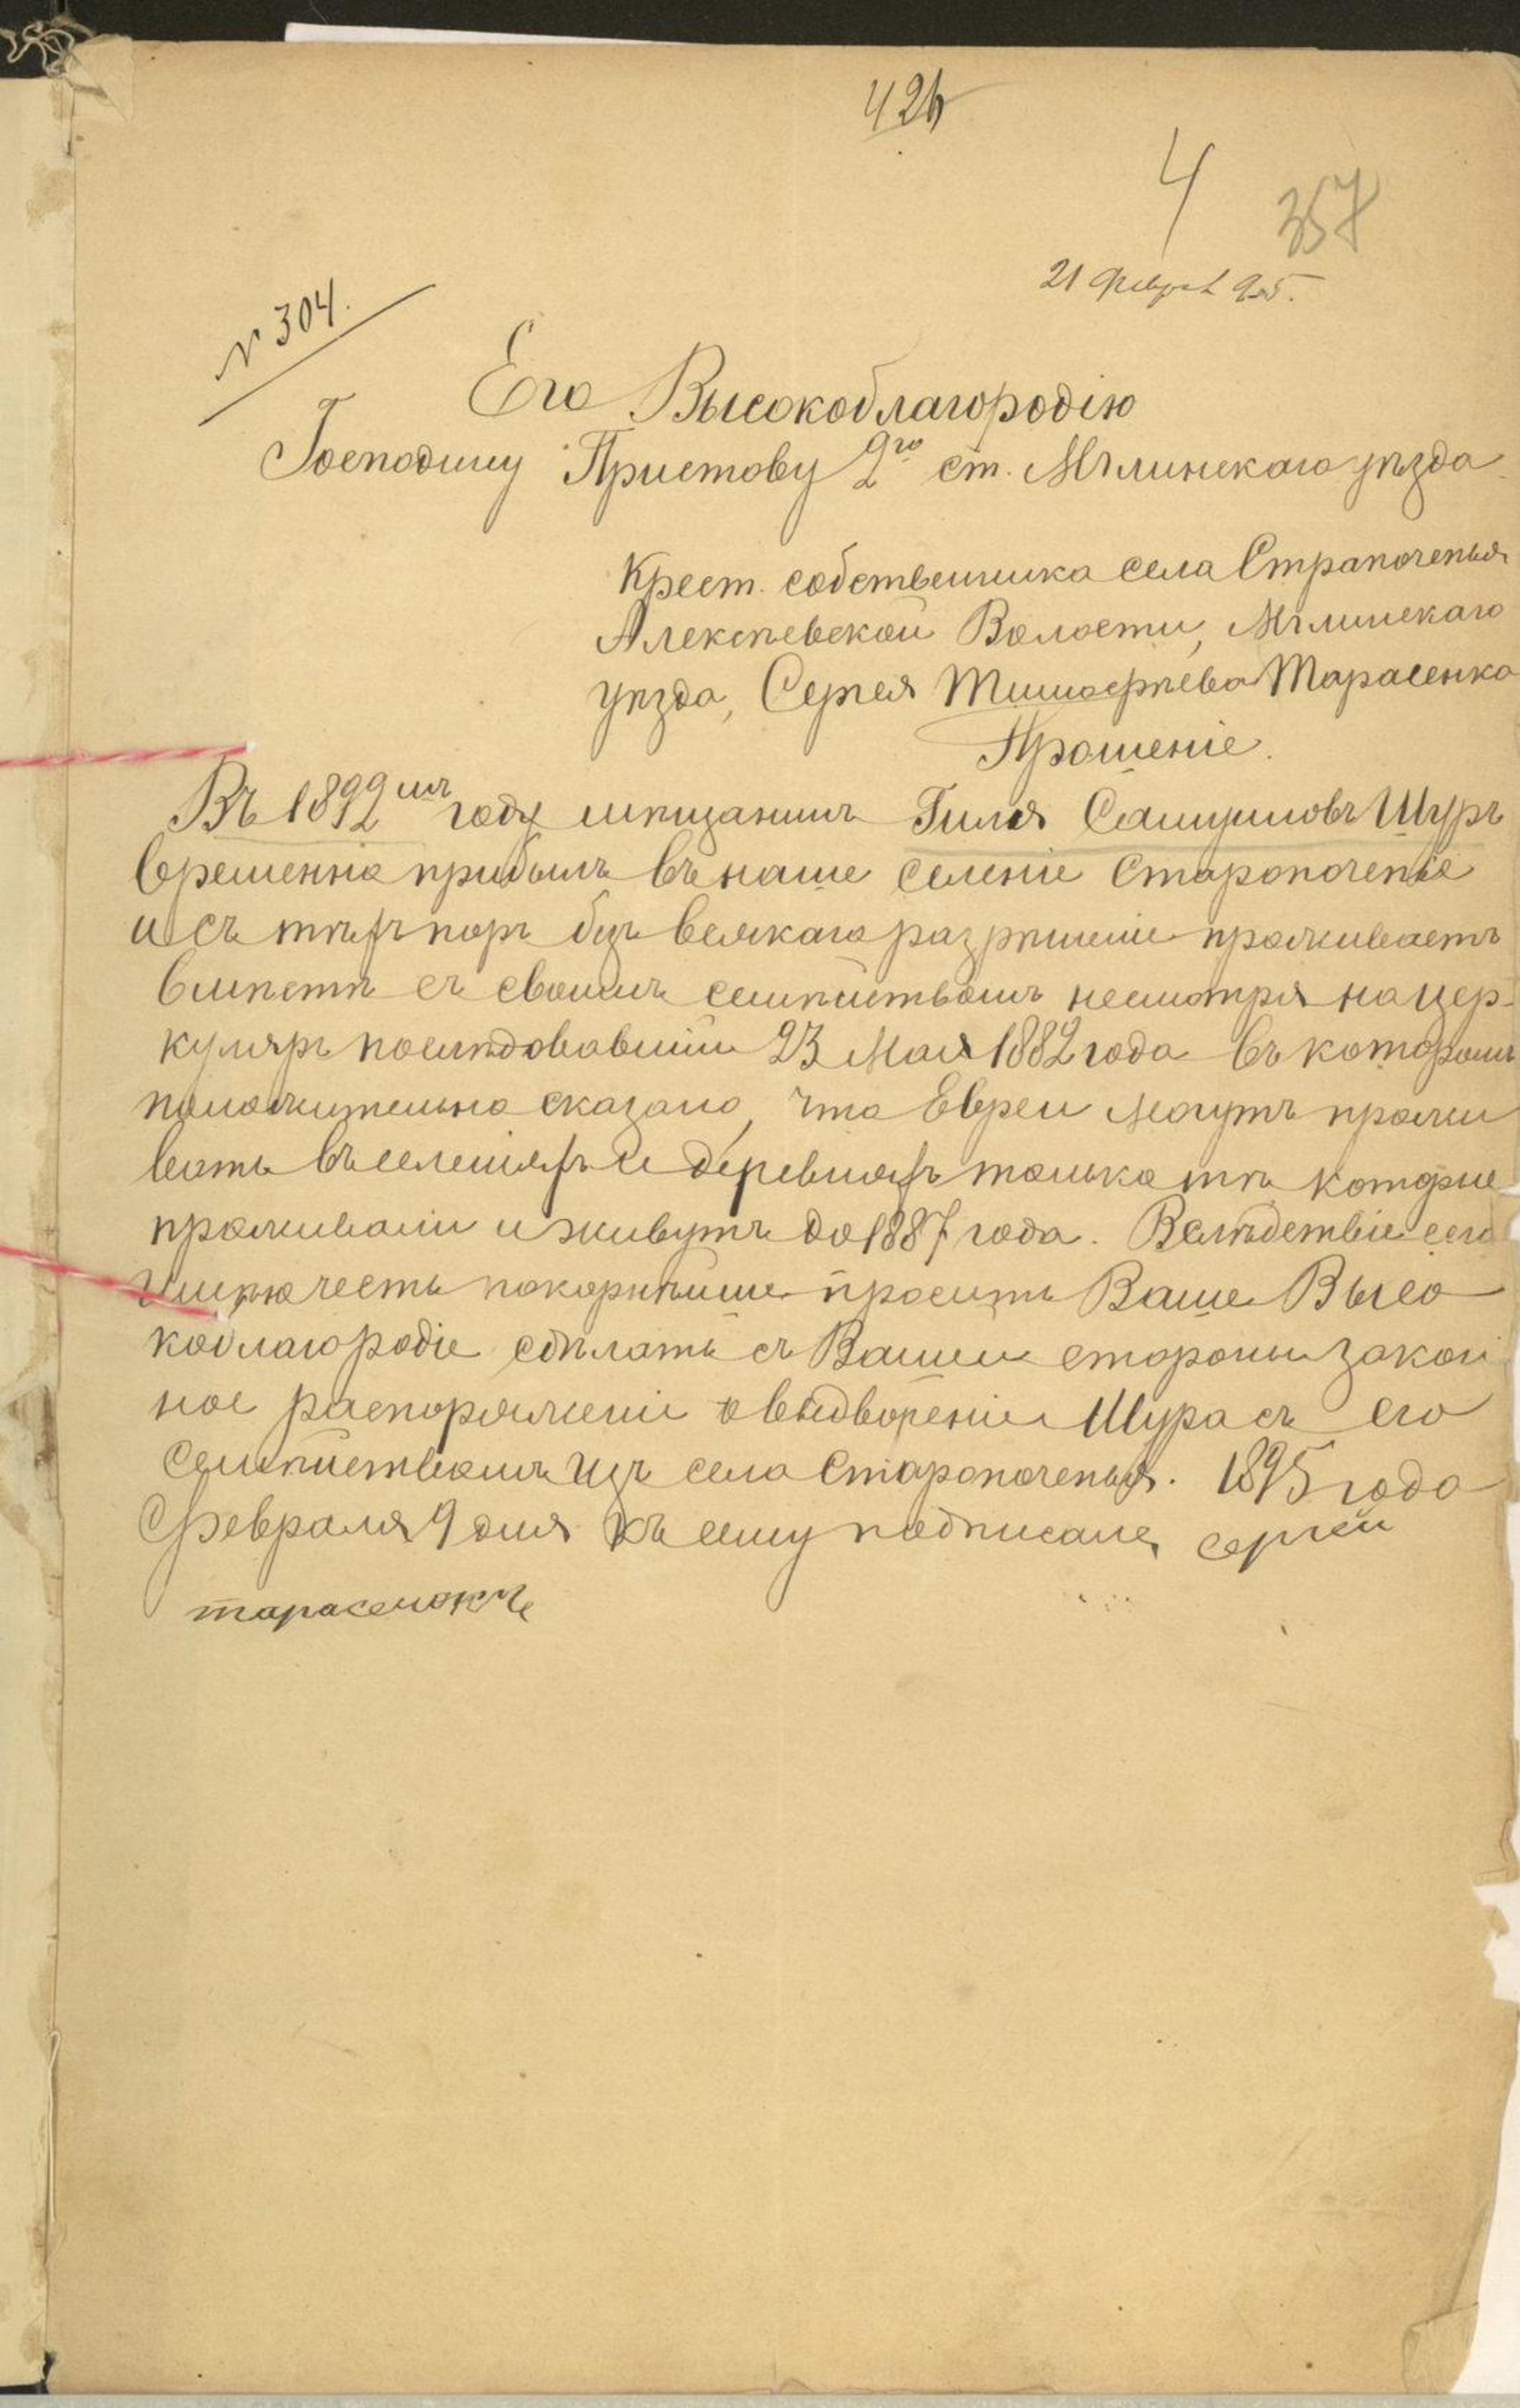 426
4
357
21 Февраля 95.
№ 304.
Его Высокоблагородію
Господину Приставу 2го ст. Мглинскаго уѣзда
Крест. собственника села Страпоченья
Алексѣевской Волости, Мглинскаго
уѣзда, Сергея Тимоѳеѣева Тарасенко
Прошеніе.
Въ 1892мъ году мѣщанинъ Гиля Самуиловъ Шуръ
временно прибылъ въ наше селеніе Старопоченье
и съ тѣхъ поръ безъ всякаго разрѣшенія проживаетъ
вмѣстѣ съ своимъ семѣйствомъ несмотря на цер-
куляръ послѣдовавшій 23 Мая 1882 года въ которомъ
положительно сказано, что Евреи могутъ прожи
вать въ селеніяхъ и деревняхъ только тѣ которые
проживали и живутъ до 1887 года. Вслѣдствіе сего
имѣю честь покорнѣйше просить Ваше Высо
коблагородіе сдѣлать съ Вашей стороны закон
ное распоряженіе о выдвореніи Шура съ его
семѣйствомъ изъ села Старопоченья. 1895 года
Февраля 9 дня къ сему подписался Сергей
тарасенокъ